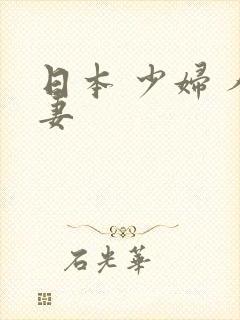 日本 少婦
妻
石光華